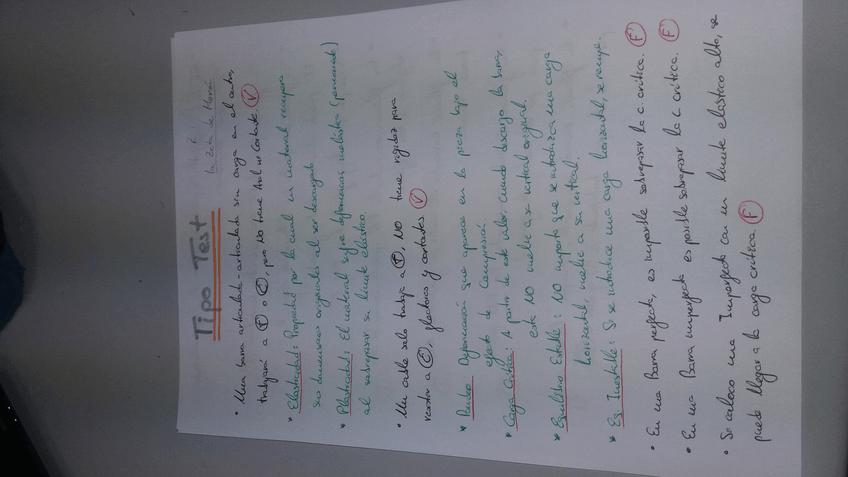 Tipo Test
• Una barra articulada-articulada sin carga en el centro,
trabajará a T o C, pero No tiene ni Cortante. V
* Elasticidad: Propiedad por la cual un material recupera
sus dimensiones originales al ser descargado
* Plasticidad: El material sufre deformaciones (permanente)
al sobrepasar su límite elástico.
• Un cable solo trabaja a T, NO tiene rigidez para
resistir a C, flectores y cortantes V
* Pandeo: Deformación que aparece en la pieza bajo el
efecto de Compresión.
* Carga Crítica: A partir de este valor, cuando descargo la barra,
esta NO vuelve a su vertical original.
* Equilibrio Estable: NO importa que se introduzca una carga
horizontal, vuelve a su vertical.
* Eq. Inestable: Si se introduce una carga horizontal, se rompe.
• En una Barra perfecta, es imposible sobrepasar la c. crítica. F
• En una Barra imperfecta es posible sobrepasar la c. crítica. F
• Si coloco una Imperfecta con un límite elástico alto, se
puede llegar a la carga crítica. F